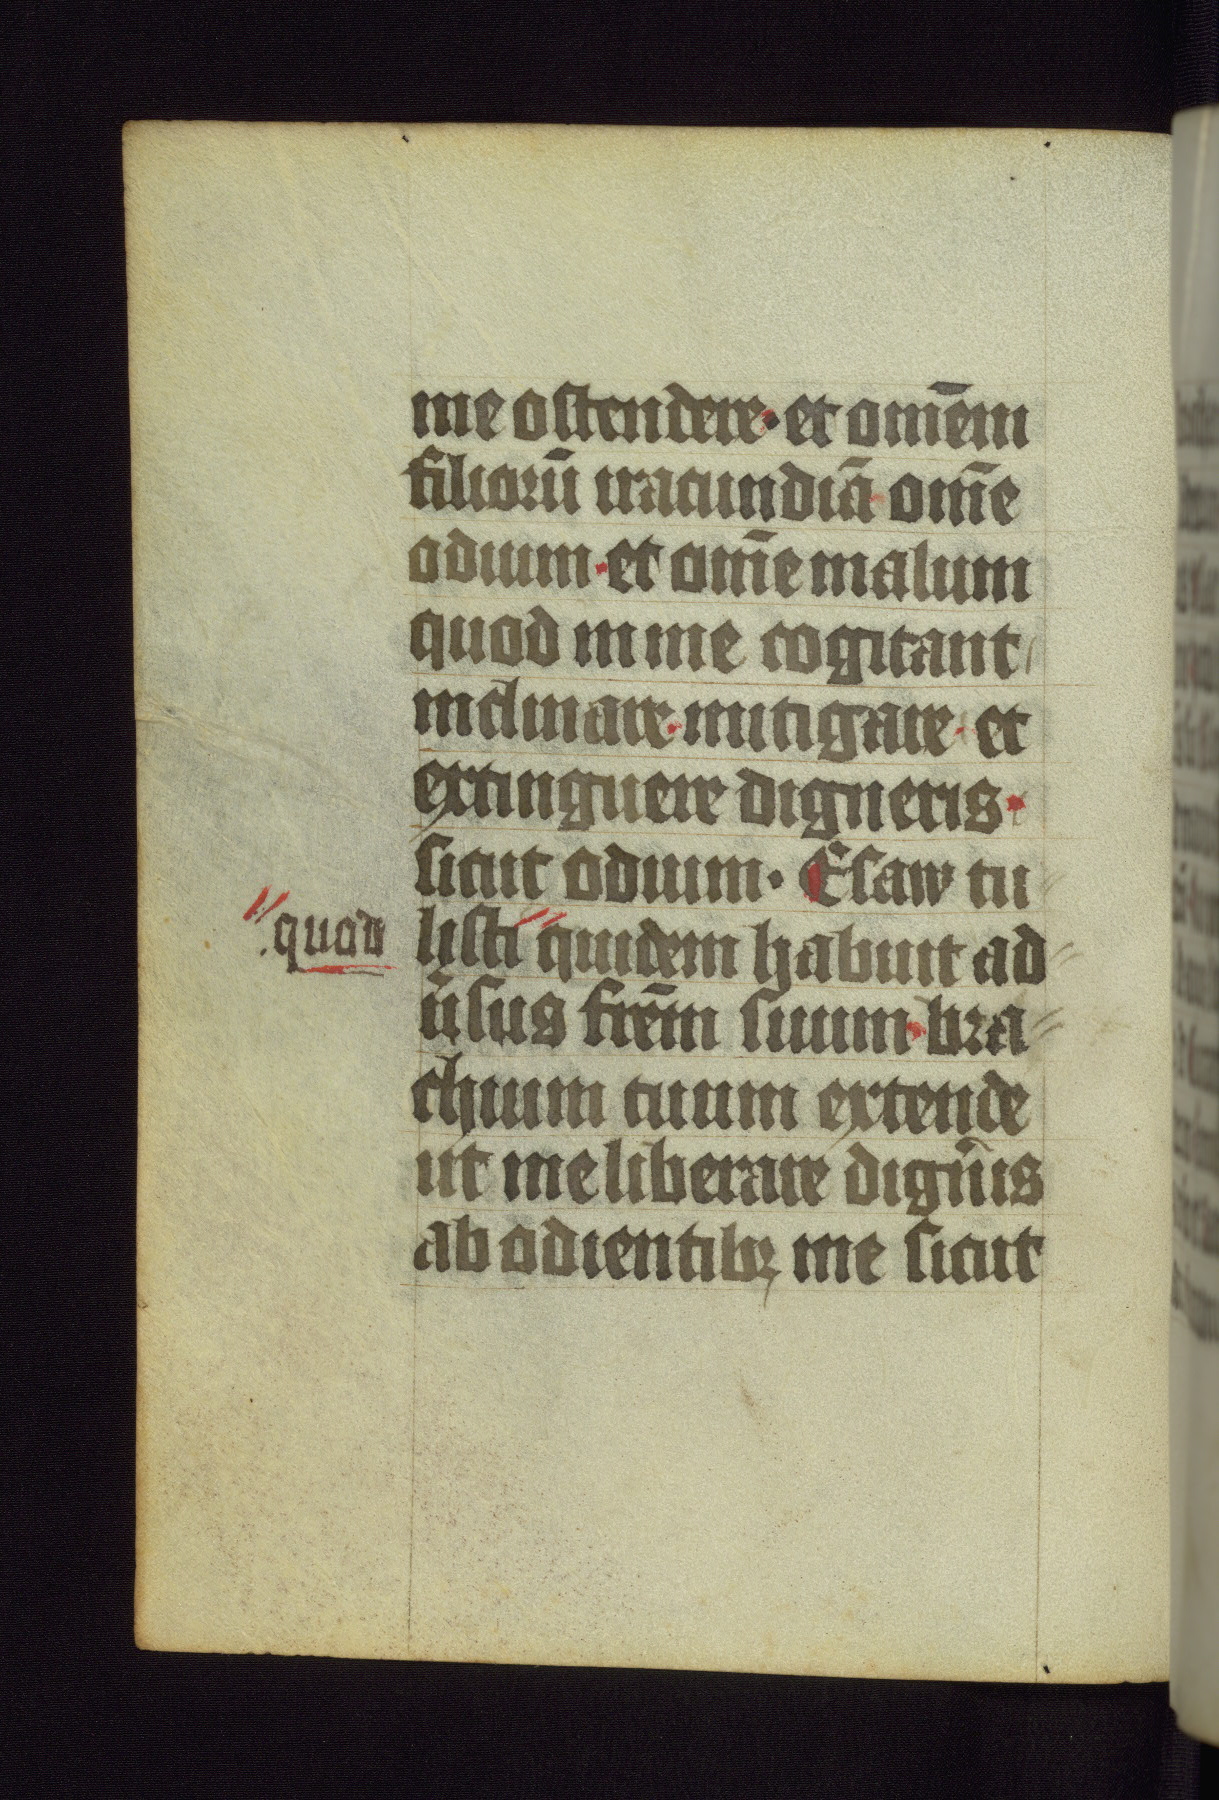 me ostendere· et om̄em
filiorū iracundiā om̄e
odium· et om̄e malum
quod in me cogitant
inclinare· mitigare· et
extinguere digneris·
sicut odium· Esaw tu
quod
listi quidem habuit ad
ūsus frēm suum· bra
chium tuum extende
ut me liberare dign̄is
ab odientibꝫ me sicut